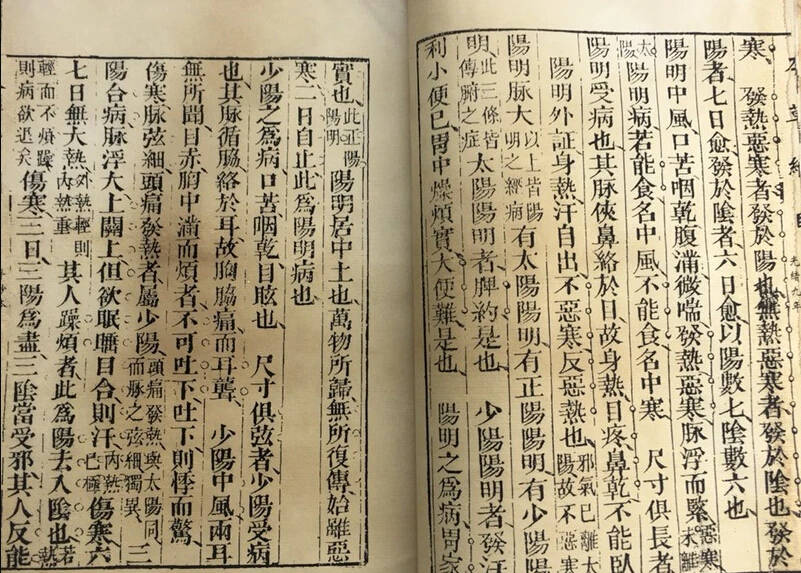 本草綱目
光緒九年
寒　發熱惡寒者發於陽也無熱惡寒者發於陰也發於
陽者七日愈發於陰者六日愈以陽數七陰數六也
陽明中風口苦咽乾腹滿微喘發熱惡寒脉浮而緊惡寒未離
太陽陽明病若能食名中風不能食名中寒　尺寸俱長者
陽明受病也其脉俠鼻絡於目故身熱目疼鼻乾不能臥
陽明外証身熱汗自出不惡寒反惡熱也邪氣已離太陽故不惡寒
陽明脉大以上皆陽明之經病有太陽陽明有正陽陽明有少陽陽
明此三條皆傳腑之症太陽陽明者脾約是也　少陽陽明者發汗
利小便已胃中燥煩實大便難是也　陽明之爲病胃家
實也此正陽陽明陽明居中土也萬物所歸無所復傳始雖惡
寒二日自止此爲陽明病也
少陽之爲病口苦咽乾目眩也　尺寸俱弦者少陽受病
也其脉循脇絡於耳故胸脇痛而耳聾　少陽中風兩耳
無所聞目赤胸中滿而煩者不可吐下吐下則悸而驚
傷寒脉弦細頭痛發熱者屬少陽頭痛發熱與太陽同而脉之弦細獨異　三
陽合病脉浮大上關上但欲眠睡目合則汗內熱已極傷寒六
七日無大熱外熱輕則內熱重其人躁煩者此爲陽去入陰也若熱
輕而不煩躁則病欲退矣傷寒三日三陽爲盡三陰當受邪其人反能